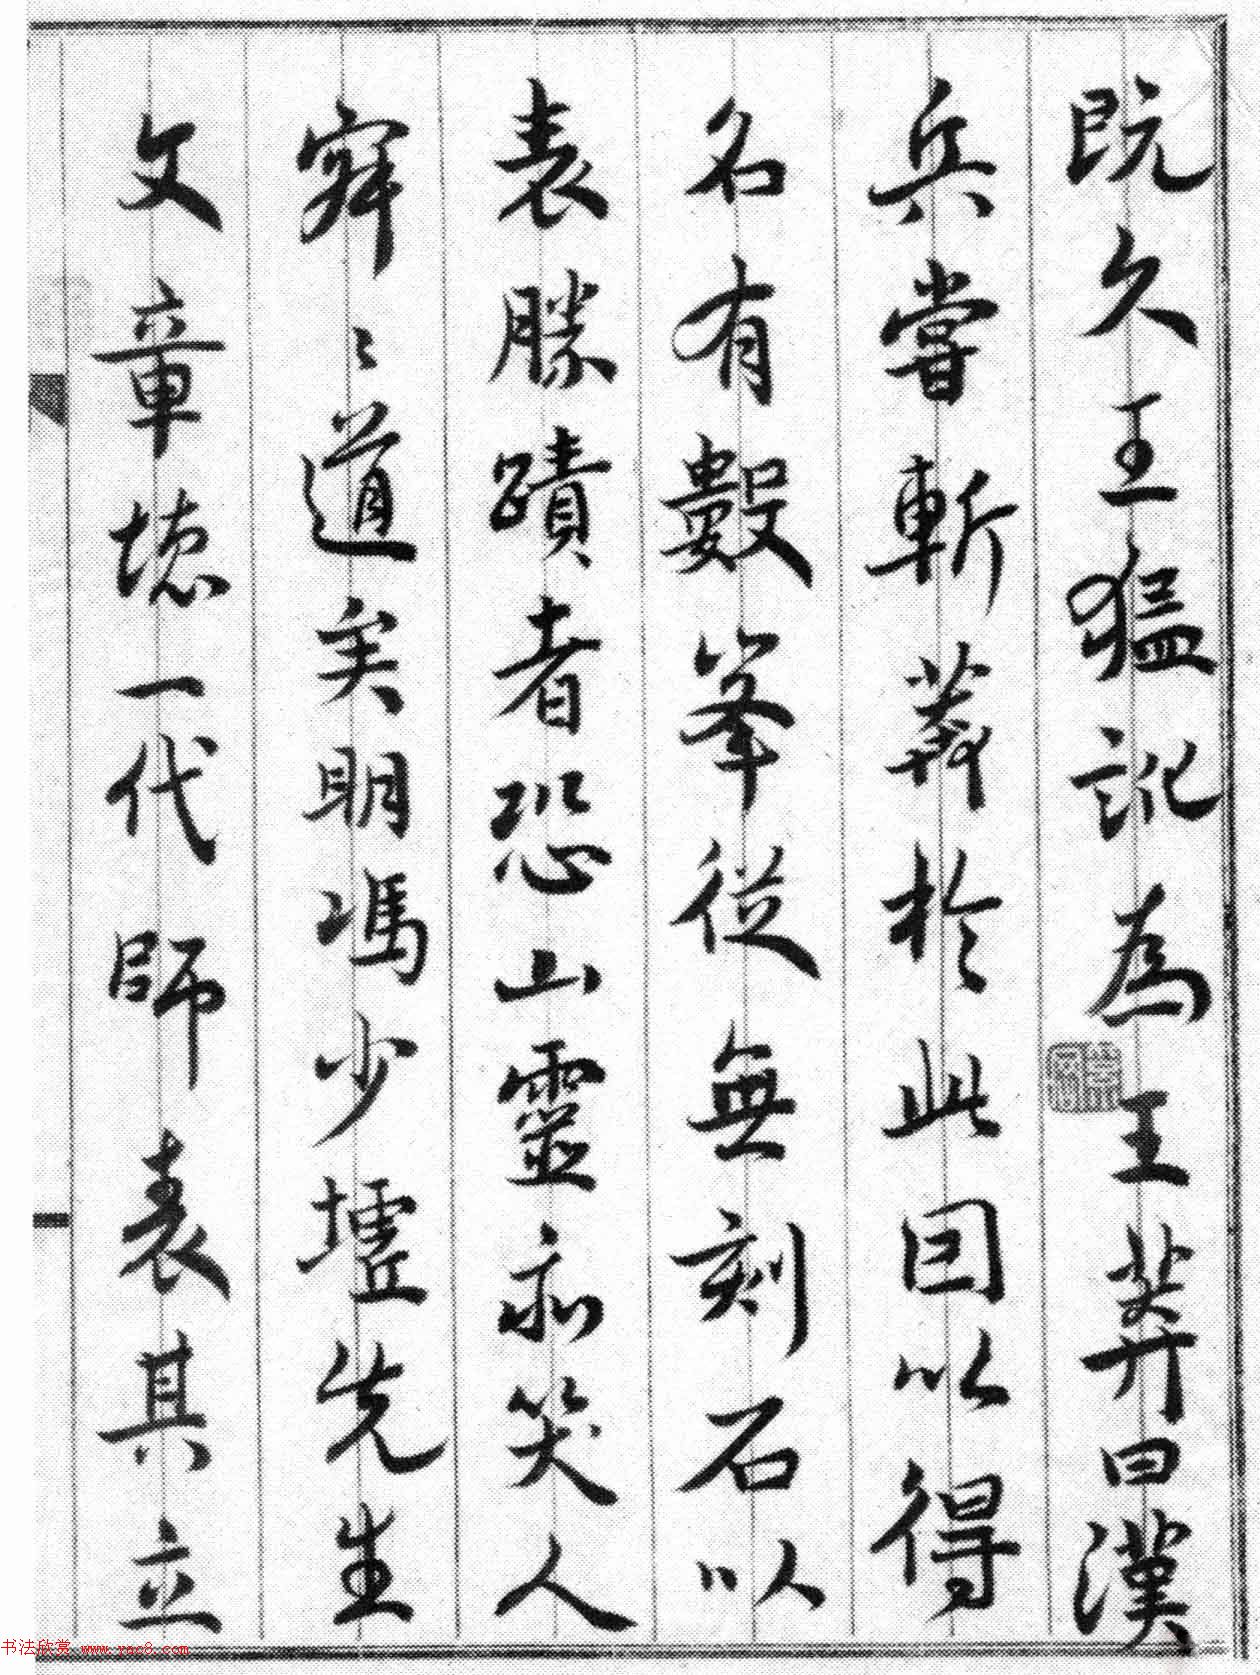 既久王猛訛為王莽曰漢
兵嘗斬莽於此因以得
名有數峯從無刻石以
表勝蹟者恐山靈亦笑人
寂〻道矣明馮少墟先生
文章德一代師表其立
书法欣赏 www.yac8.com